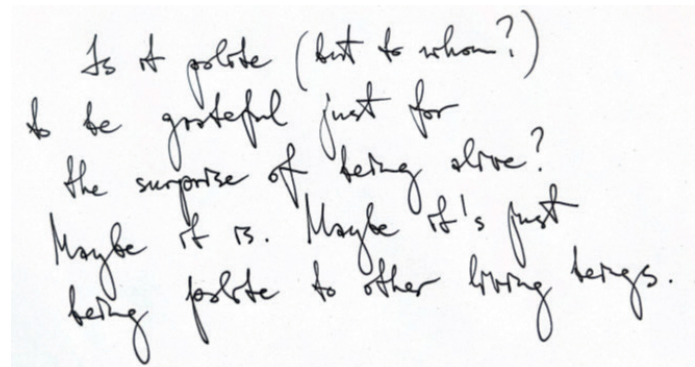 Is it polite (but to whom?)
to be grateful just for
the surprise of being alive?
Maybe it is. Maybe it's just
being polite to other living beings.